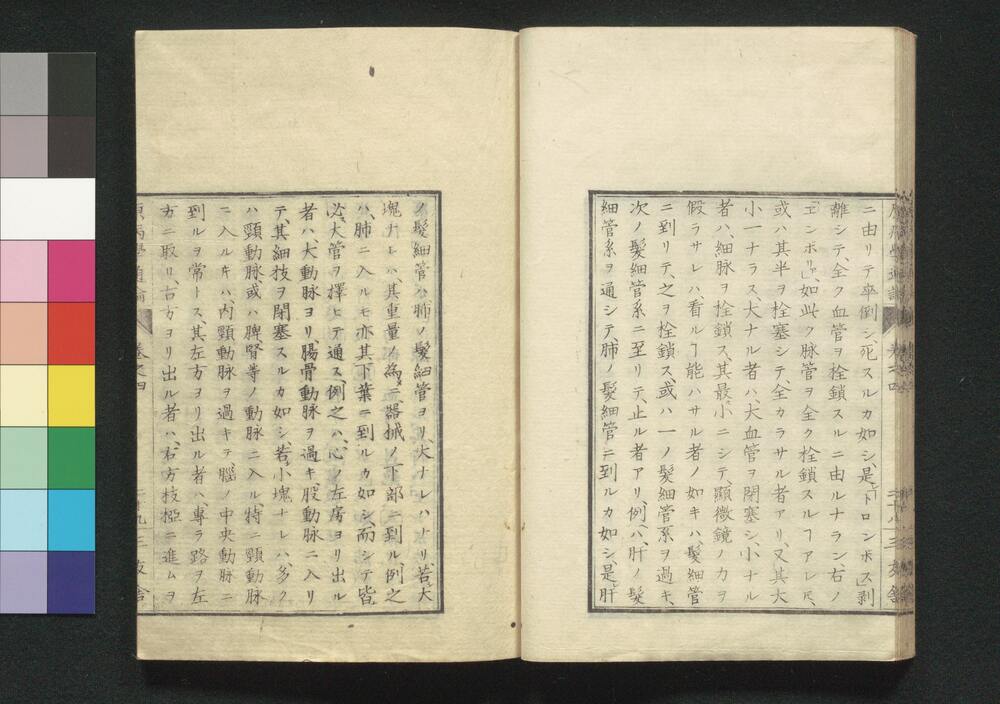 ニ由リテ卒倒シ死スルカ如シ、是「トロンボス」剥
離シテ、全ク血管ヲ栓鎖スルニ由ルナラン、右ノ
「エンボリ」、如此ク脉管ヲ全ク栓鎖スルヿアレ𪜈、
或ハ其半ヲ栓塞シテ、全カラサル者アリ、又其大
小一ナラス、大ナル者ハ、大血管ヲ閉塞シ、小ナル
者ハ、細脉ヲ栓鎖ス、其最小ニシテ、顕微鏡ノ力ヲ
假ラサレハ、看ルヿ能ハサル者ノ如キハ、髮細管
ニ到リテ、之ヲ栓鎖ス、或ハ一ノ髮細管系ヲ過キ、
次ノ髮細管系ニ至リテ、止ル者アリ、例ヘハ、肝ノ髮
細管系ヲ通シテ、肺ノ髮細管ニ到ルカ如シ、是肝
ノ髮細管ハ肺ノ髮細管ヨリ、大ナレハナリ、若大
塊ナレハ、其重量ノ為ニ器械ノ下部ニ到ル、例之
ハ、肺ニ入ルモ亦其下葉ニ到ルカ如シ、而シテ皆
必大管ヲ擇ヒテ通ス、例之ハ、心ノ左房ヨリ出ル
者ハ、大動脉ヨリ、腸骨動脉ヲ過キ、股動脉ニ入リ
テ、其細技ヲ閉塞スルカ如シ、若小塊ナレハ、多ク
ハ頸動脉或ハ脾腎等ノ動脉ニ入ル、特ニ頸動脉
ニ入ル𪜈ハ、内頸動脉ヲ過キテ、腦ノ中央動脉ニ
到ルヲ常トス、其左方ヨリ出ル者ハ、專ラ路ヲ左
方ニ取リ、右方ヨリ出ル者ハ、右方枝極ニ進ムヲ
原病學通論 卷之四 二十九 三友舎